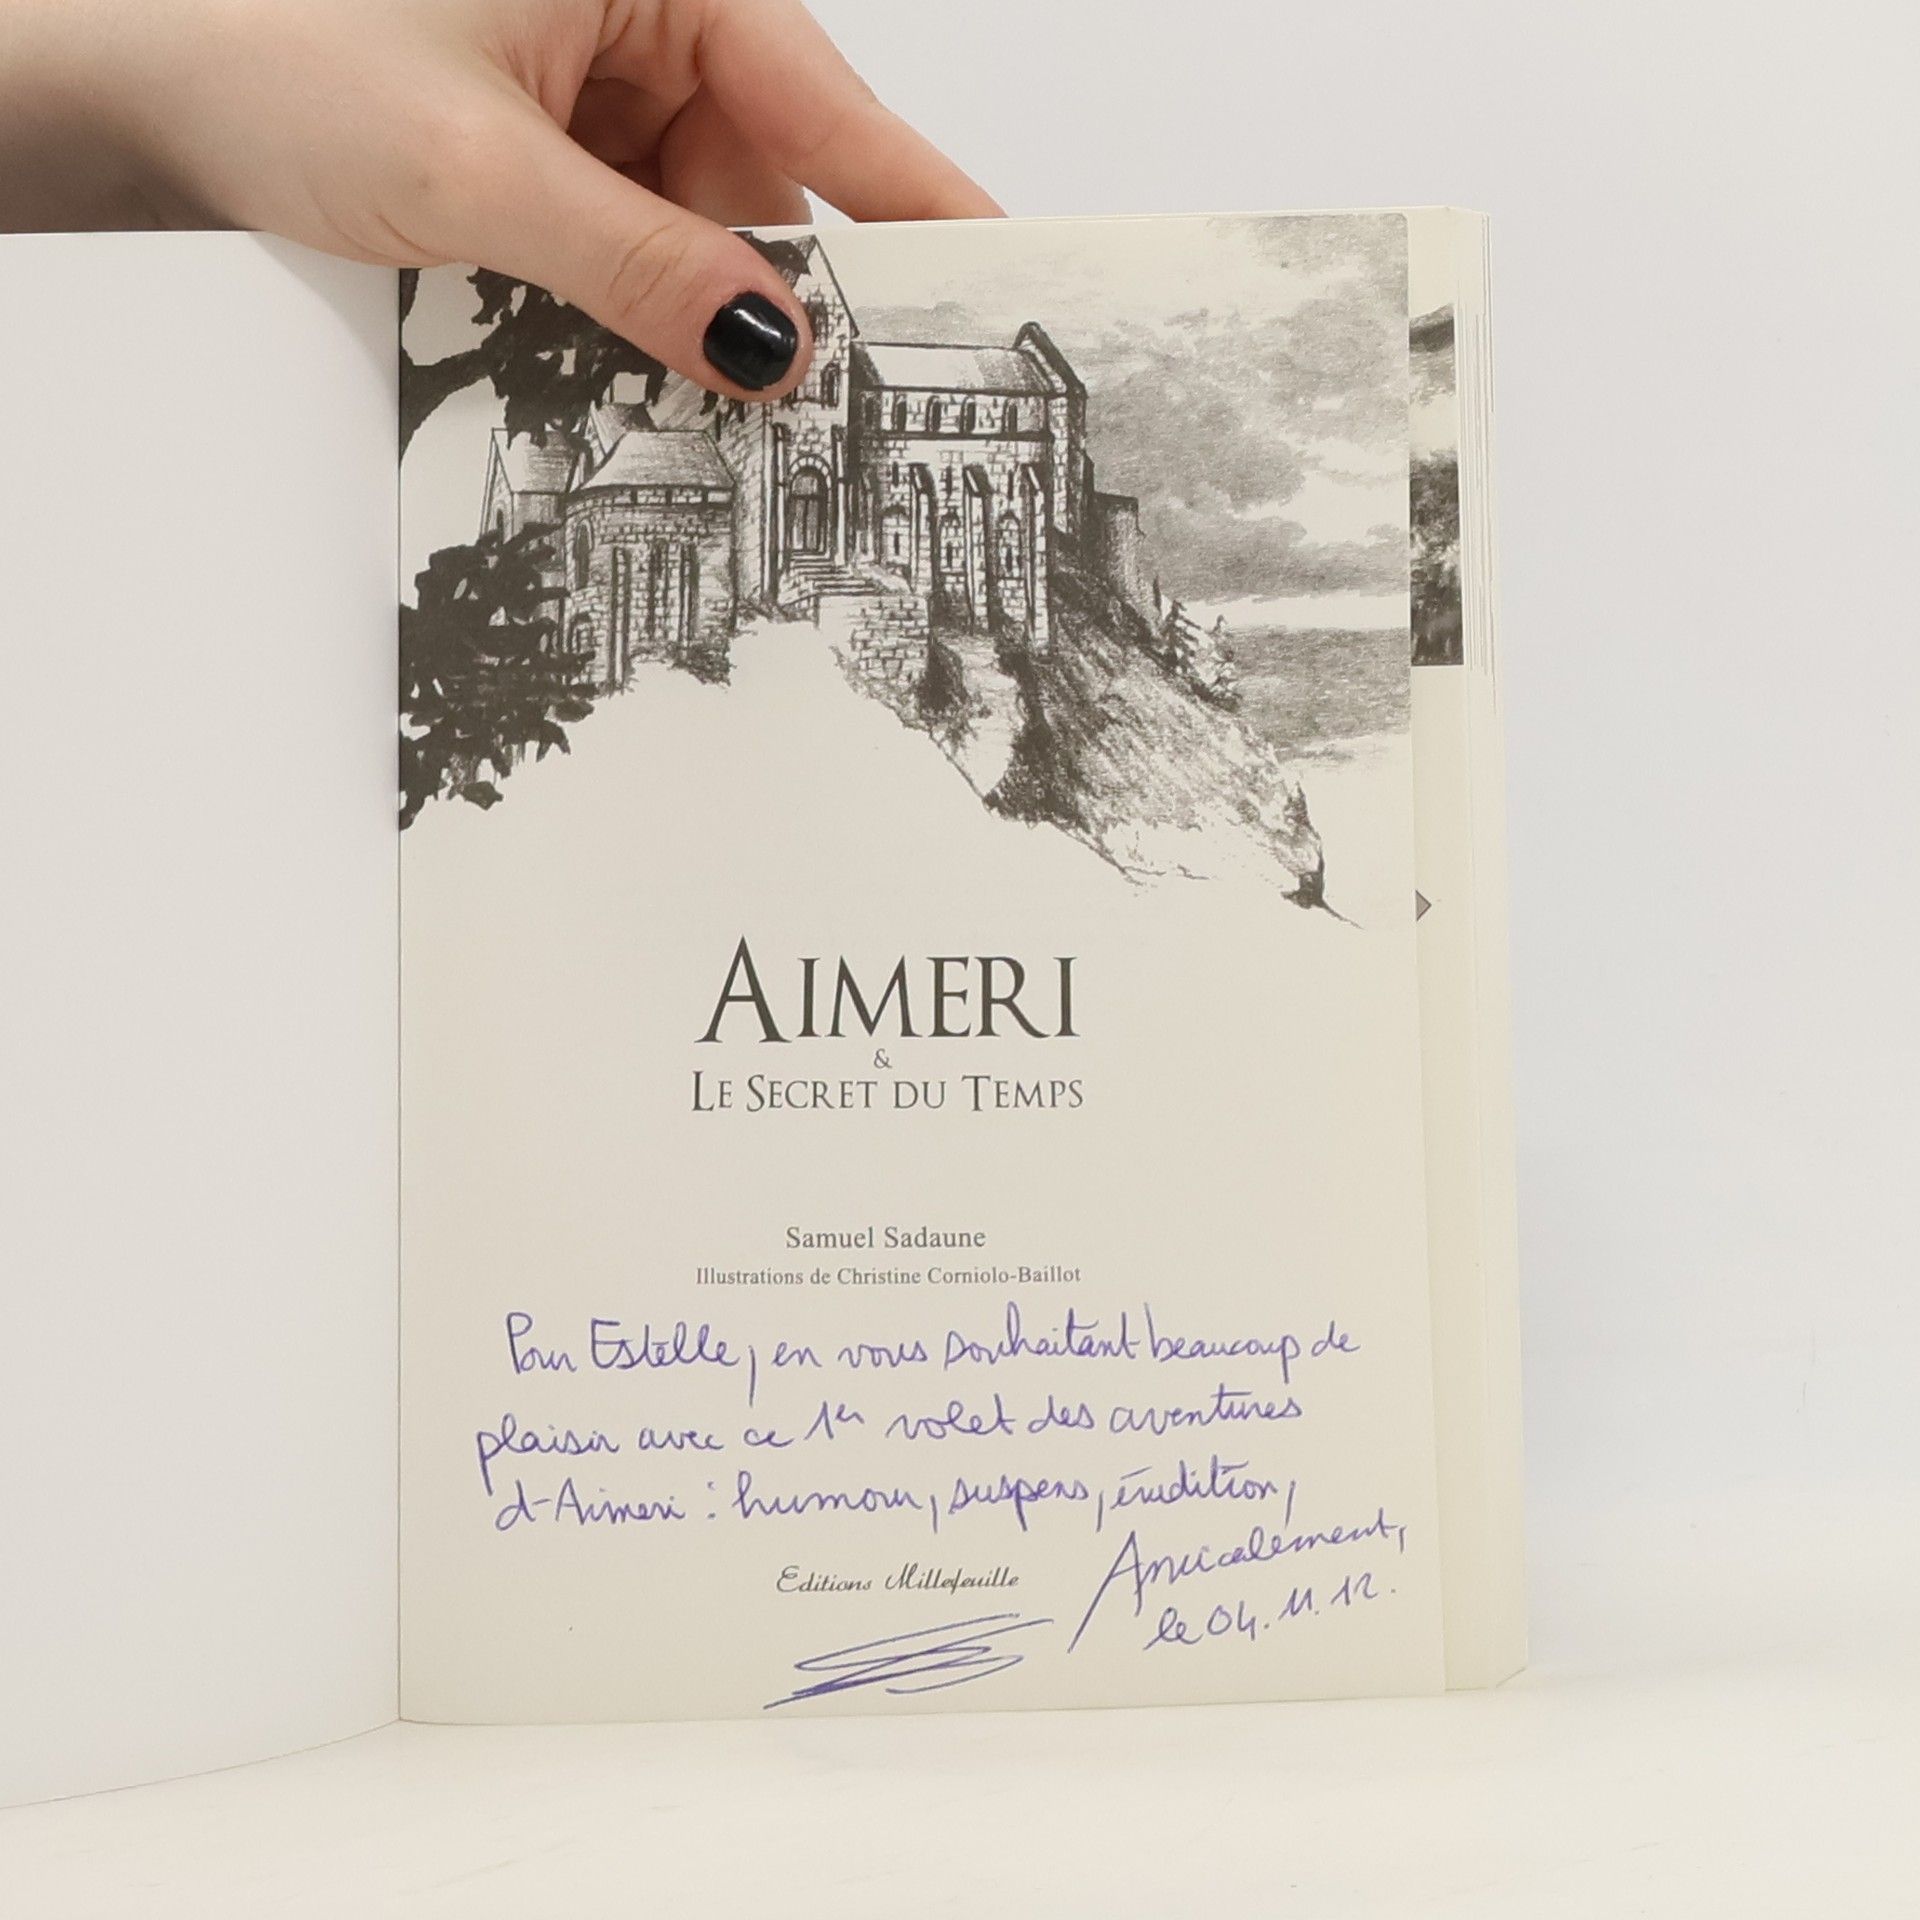 AIMERI
&
LE SECRET DU TEMPS
Samuel Sadaune
Illustrations de Christine Corniolo-Baillot
Pour Estelle, en vous souhaitant beaucoup de
plaisir avec ce 1er volet des aventures
d'Aimeri : humour, suspens, érudition,
Amicalement,
Editions Millefeuille
le 04.11.12.